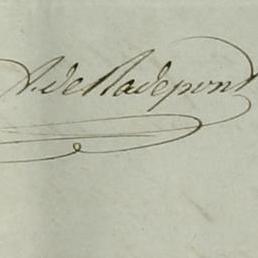 A. de Radepont